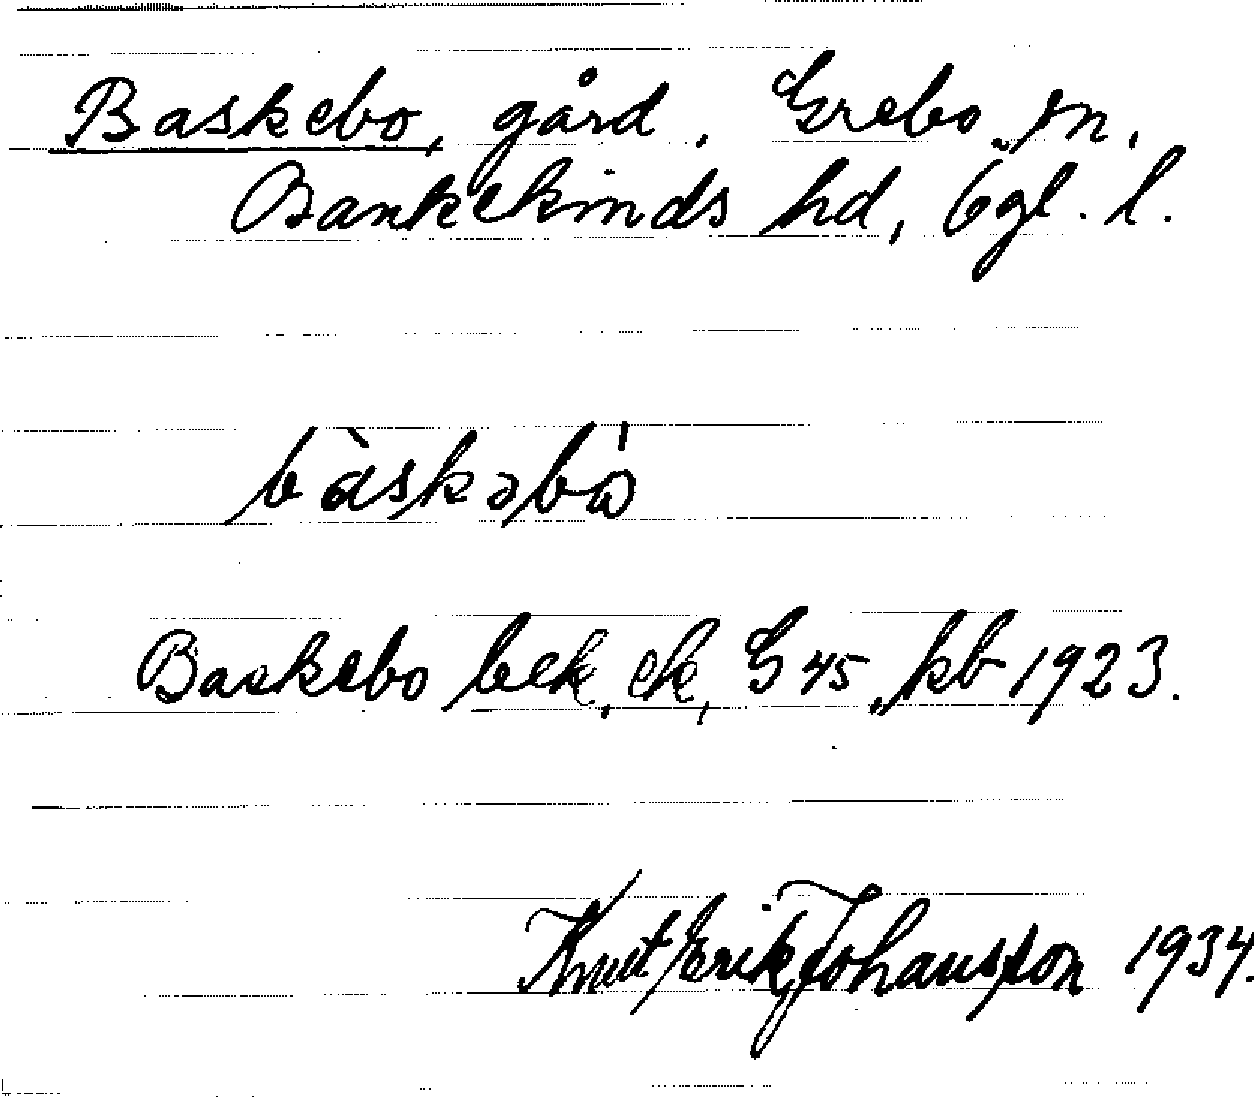 Baskebo, gård. Grebo sn.
Bankekinds hd, Ögl. l.
bàskəbó
Baskebo bek. ek, G 45, kb 1923.
Knut Erik Johansson 1934.